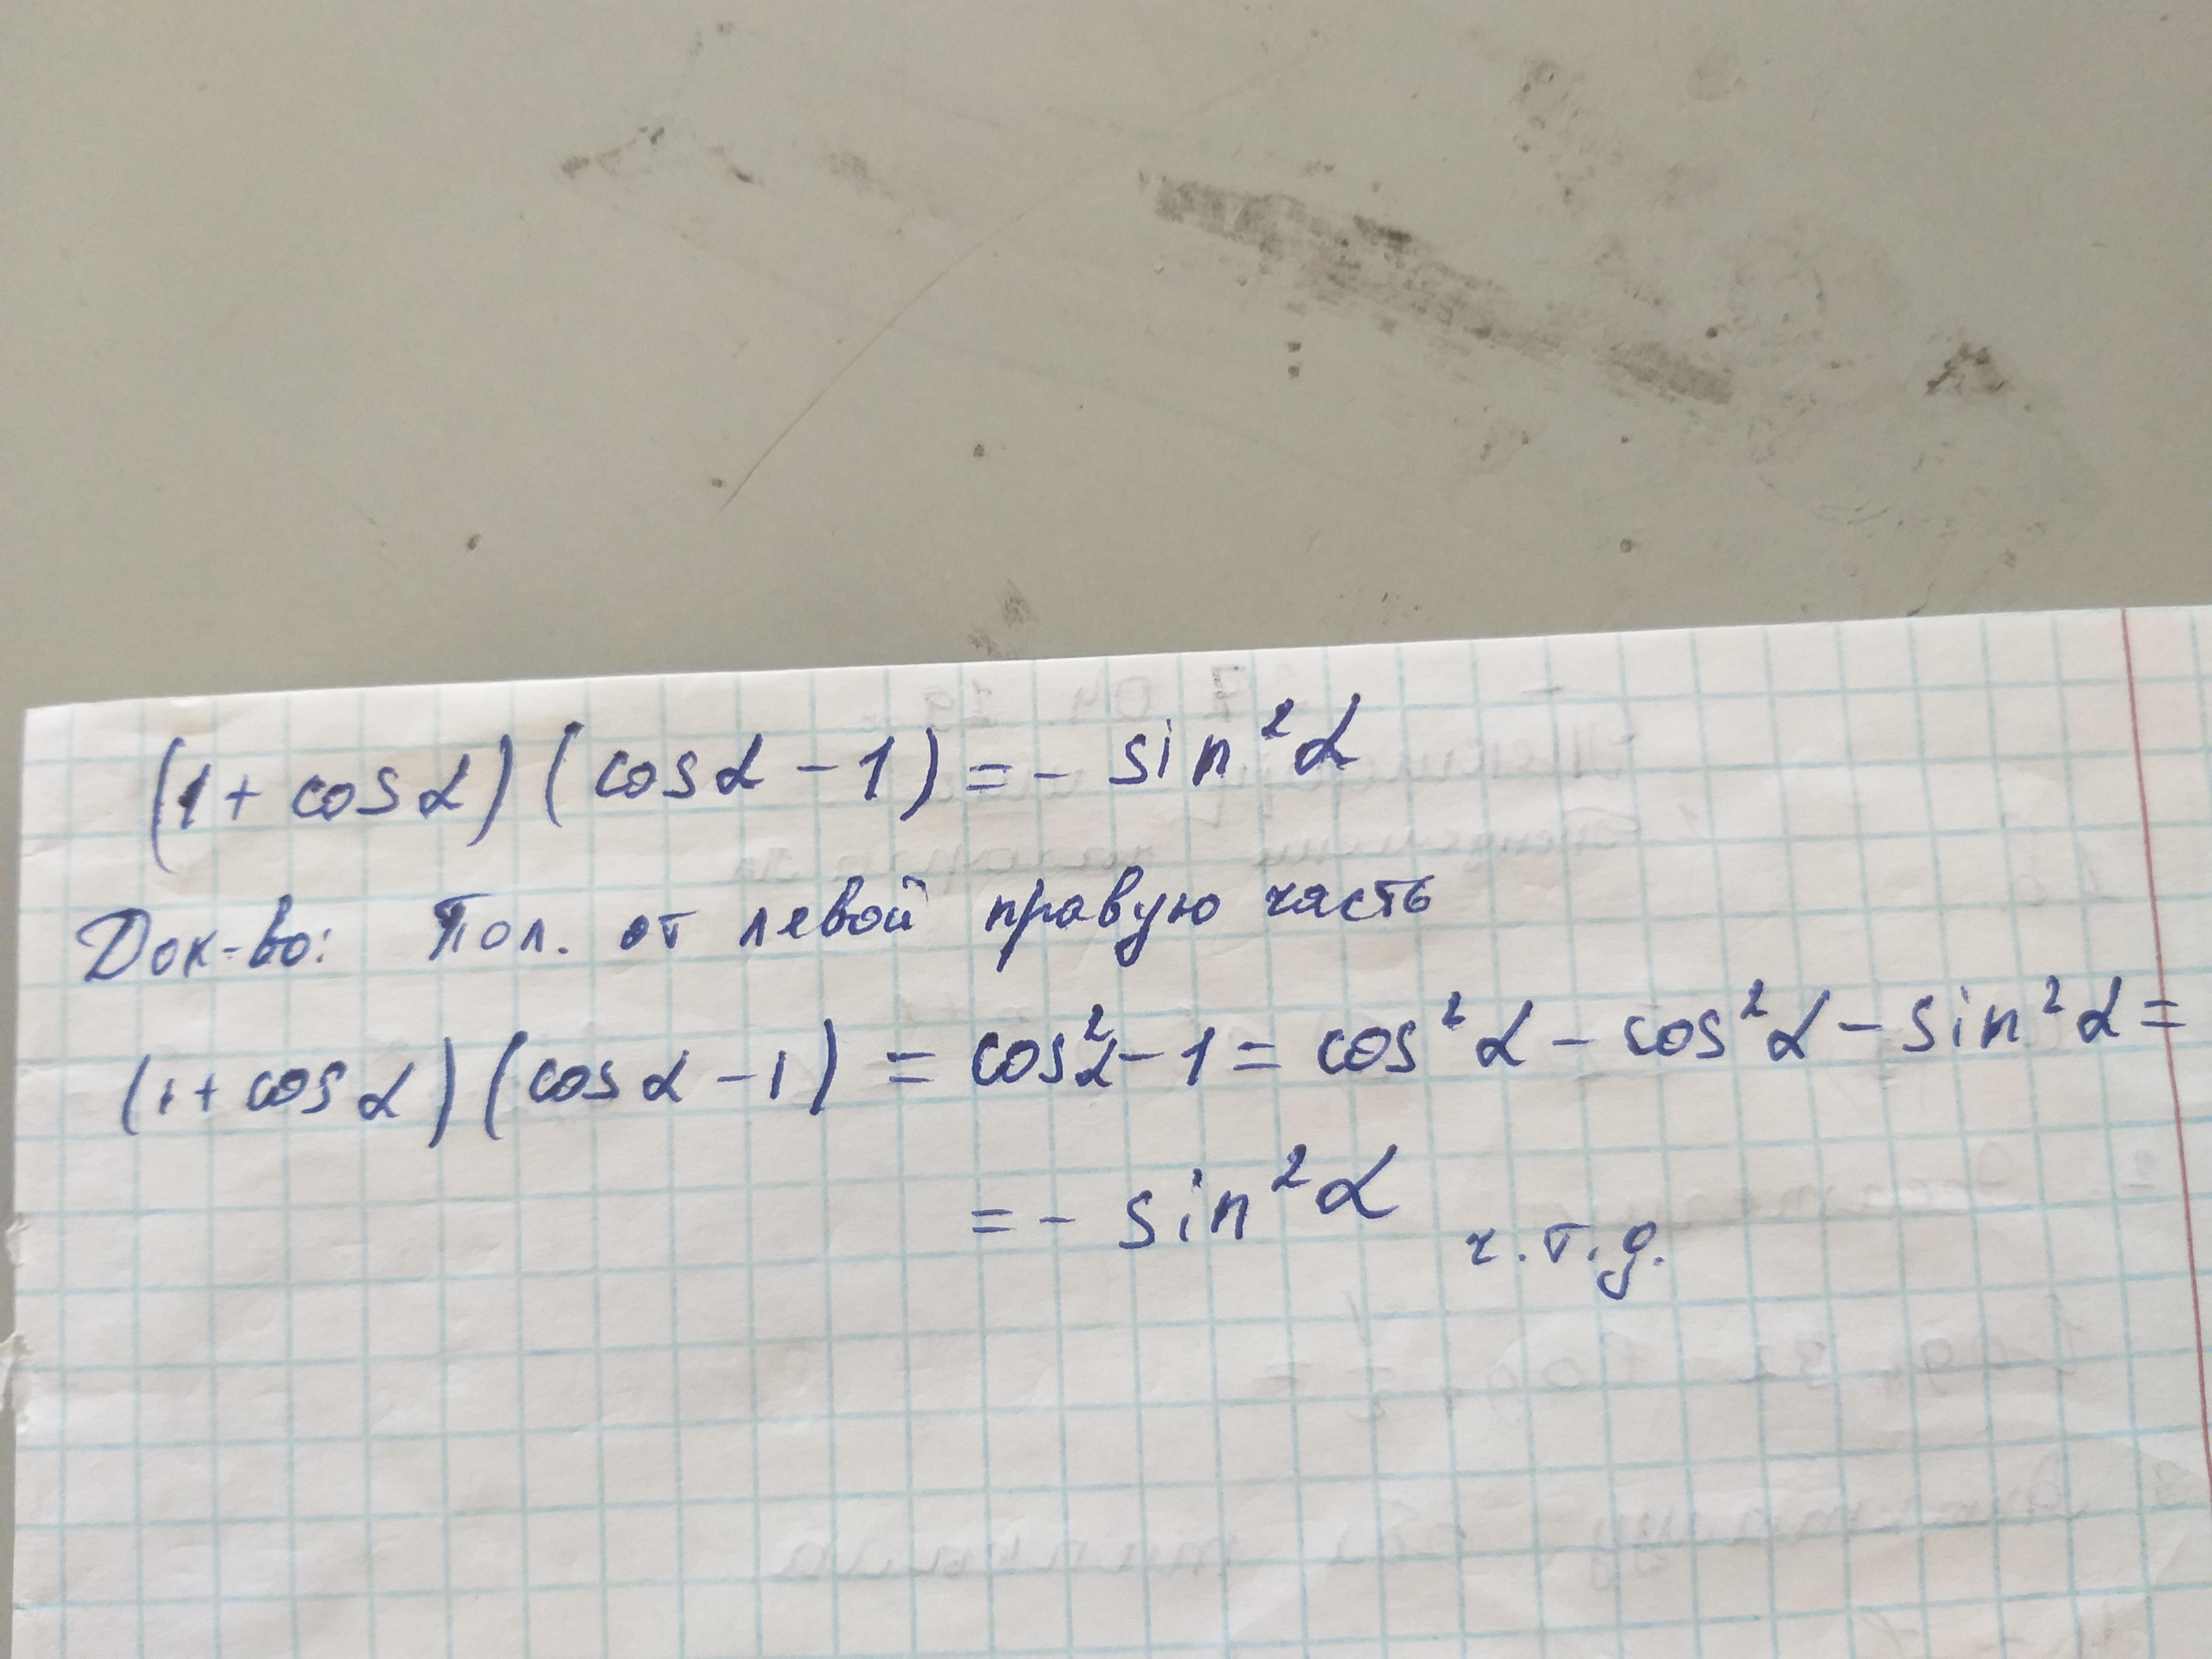 (1 + cos α) (cos α - 1) = - sin² α
Док-во: Пол. от левой правую часть
(1 + cos α) (cos α - 1) = cos² α - 1 = cos² α - cos² α - sin² α =
= - sin² α ч.т.д.